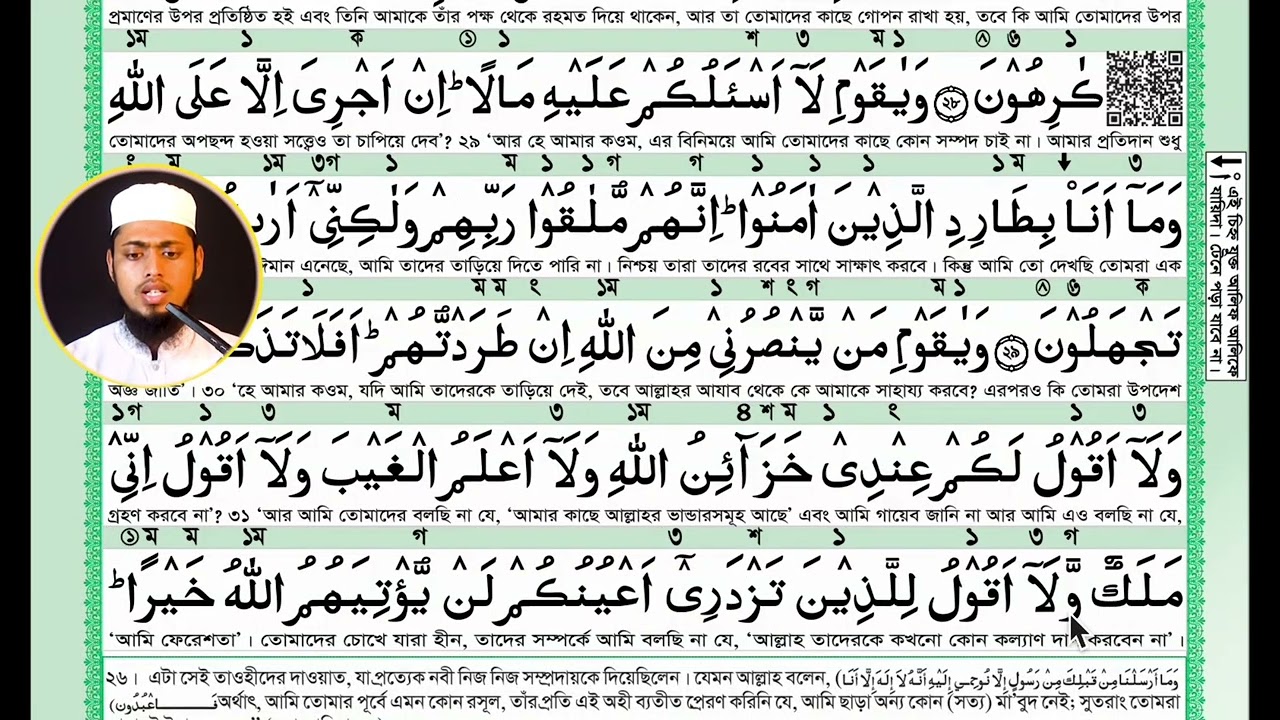 প্রমাণের উপর প্রতিষ্ঠিত হই এবং তিনি আমাকে তাঁর পক্ষ থেকে রহমত দিয়ে থাকেন, আর তা তোমাদের কাছে গোপন রাখা হয়, তবে কি আমি তোমাদের উপর
১ম ১ ক ① ১ শ ৩ ম ১ ⑧ ৬ ১
كٰرِهُوْنَ ۝٢٨ وَيٰقَوْمِ لَآ اَسْـَٔلُكُمْ عَلَيْهِ مَالًا ؕ اِنْ اَجْرِىَ اِلَّا عَلَى اللّٰهِ
তোমাদের অপছন্দ হওয়া সত্ত্বেও তা চাপিয়ে দেব’? ২৯ ‘আর হে আমার কওম, এর বিনিময়ে আমি তোমাদের কাছে কোন সম্পদ চাই না। আমার প্রতিদান শুধু
ম ১ম ৩গ ১ ম ১ ১গ গ ১ ১ ১ ১ম ↓ ৩
وَمَآ اَنَا۠ بِطَارِدِ الَّذِيْنَ اٰمَنُوْا ؕ اِنَّهُمْ مُّلٰقُوْا رَبِّهِمْ وَلٰكِنِّىْۤ
ঈমান এনেছে, আমি তাদের তাড়িয়ে দিতে পারি না। নিশ্চয় তারা তাদের রবের সাথে সাক্ষাৎ করবে। কিন্তু আমি তো দেখছি তোমরা এক
১ ম ম ং ১ম ১ শ ং গ ম ১ ⑧ ৬ ক
تَجْهَلُوْنَ ۝٢٩ وَيٰقَوْمِ مَنْ يَّنْصُرُنِىْ مِنَ اللّٰهِ اِنْ طَرَدْتُّهُمْ ؕ اَفَلَا تَذَكَّ
অজ্ঞ জাতি’। ৩০ ‘হে আমার কওম, যদি আমি তাদেরকে তাড়িয়ে দেই, তবে আল্লাহর আযাব থেকে কে আমাকে সাহায্য করবে? এরপরও কি তোমরা উপদেশ
১গ ১ ৩ ম ৩ ১ম ৪ শ ম ১ ং ১ ৩
وَلَآ اَقُوْلُ لَكُمْ عِنْدِىْ خَزَآئِنُ اللّٰهِ وَلَآ اَعْلَمُ الْغَيْبَ وَلَآ اَقُوْلُ اِنِّىْ
গ্রহণ করবে না’? ৩১ ‘আর আমি তোমাদের বলছি না যে, ‘আমার কাছে আল্লাহর ভান্ডারসমূহ আছে’ এবং আমি গায়েব জানি না আর আমি এও বলছি না যে,
① ম ম ১ম গ ৩ শ ১ ১ ৩ গ
مَلَكٌ وَّلَآ اَقُوْلُ لِلَّذِيْنَ تَزْدَرِىْۤ اَعْيُنُكُمْ لَنْ يُّؤْتِيَهُمُ اللّٰهُ خَيْرًا ؕ
‘আমি ফেরেশতা’। তোমাদের চোখে যারা হীন, তাদের সম্পর্কে আমি বলছি না যে, ‘আল্লাহ তাদেরকে কখনো কোন কল্যাণ দান করবেন না’।
২৬। এটা সেই তাওহীদের দাওয়াত, যা প্রত্যেক নবী নিজ নিজ সম্প্রদায়কে দিয়েছিলেন। যেমন আল্লাহ বলেন, (وَمَا اَرْسَلْنَا مِنْ قَبْلِكَ مِنْ رَّسُوْلٍ اِلَّا نُوْحِىْ اِلَيْهِ اَنَّهٗ لَا اِلٰهَ اِلَّا اَنَا
فَاعْبُدُوْنِ) অর্থাৎ, আমি তোমার পূর্বে এমন কোন রসূল, তাঁর প্রতি এই অহী ব্যতীত প্রেরণ করিনি যে, আমি ছাড়া অন্য কোন (সত্য) মা’বুদ নেই; সুতরাং তোমরা
এই চিহ্ন যুক্ত আলিফ আলিফে
যাদিদা। টেনে পড়া যাবে না।